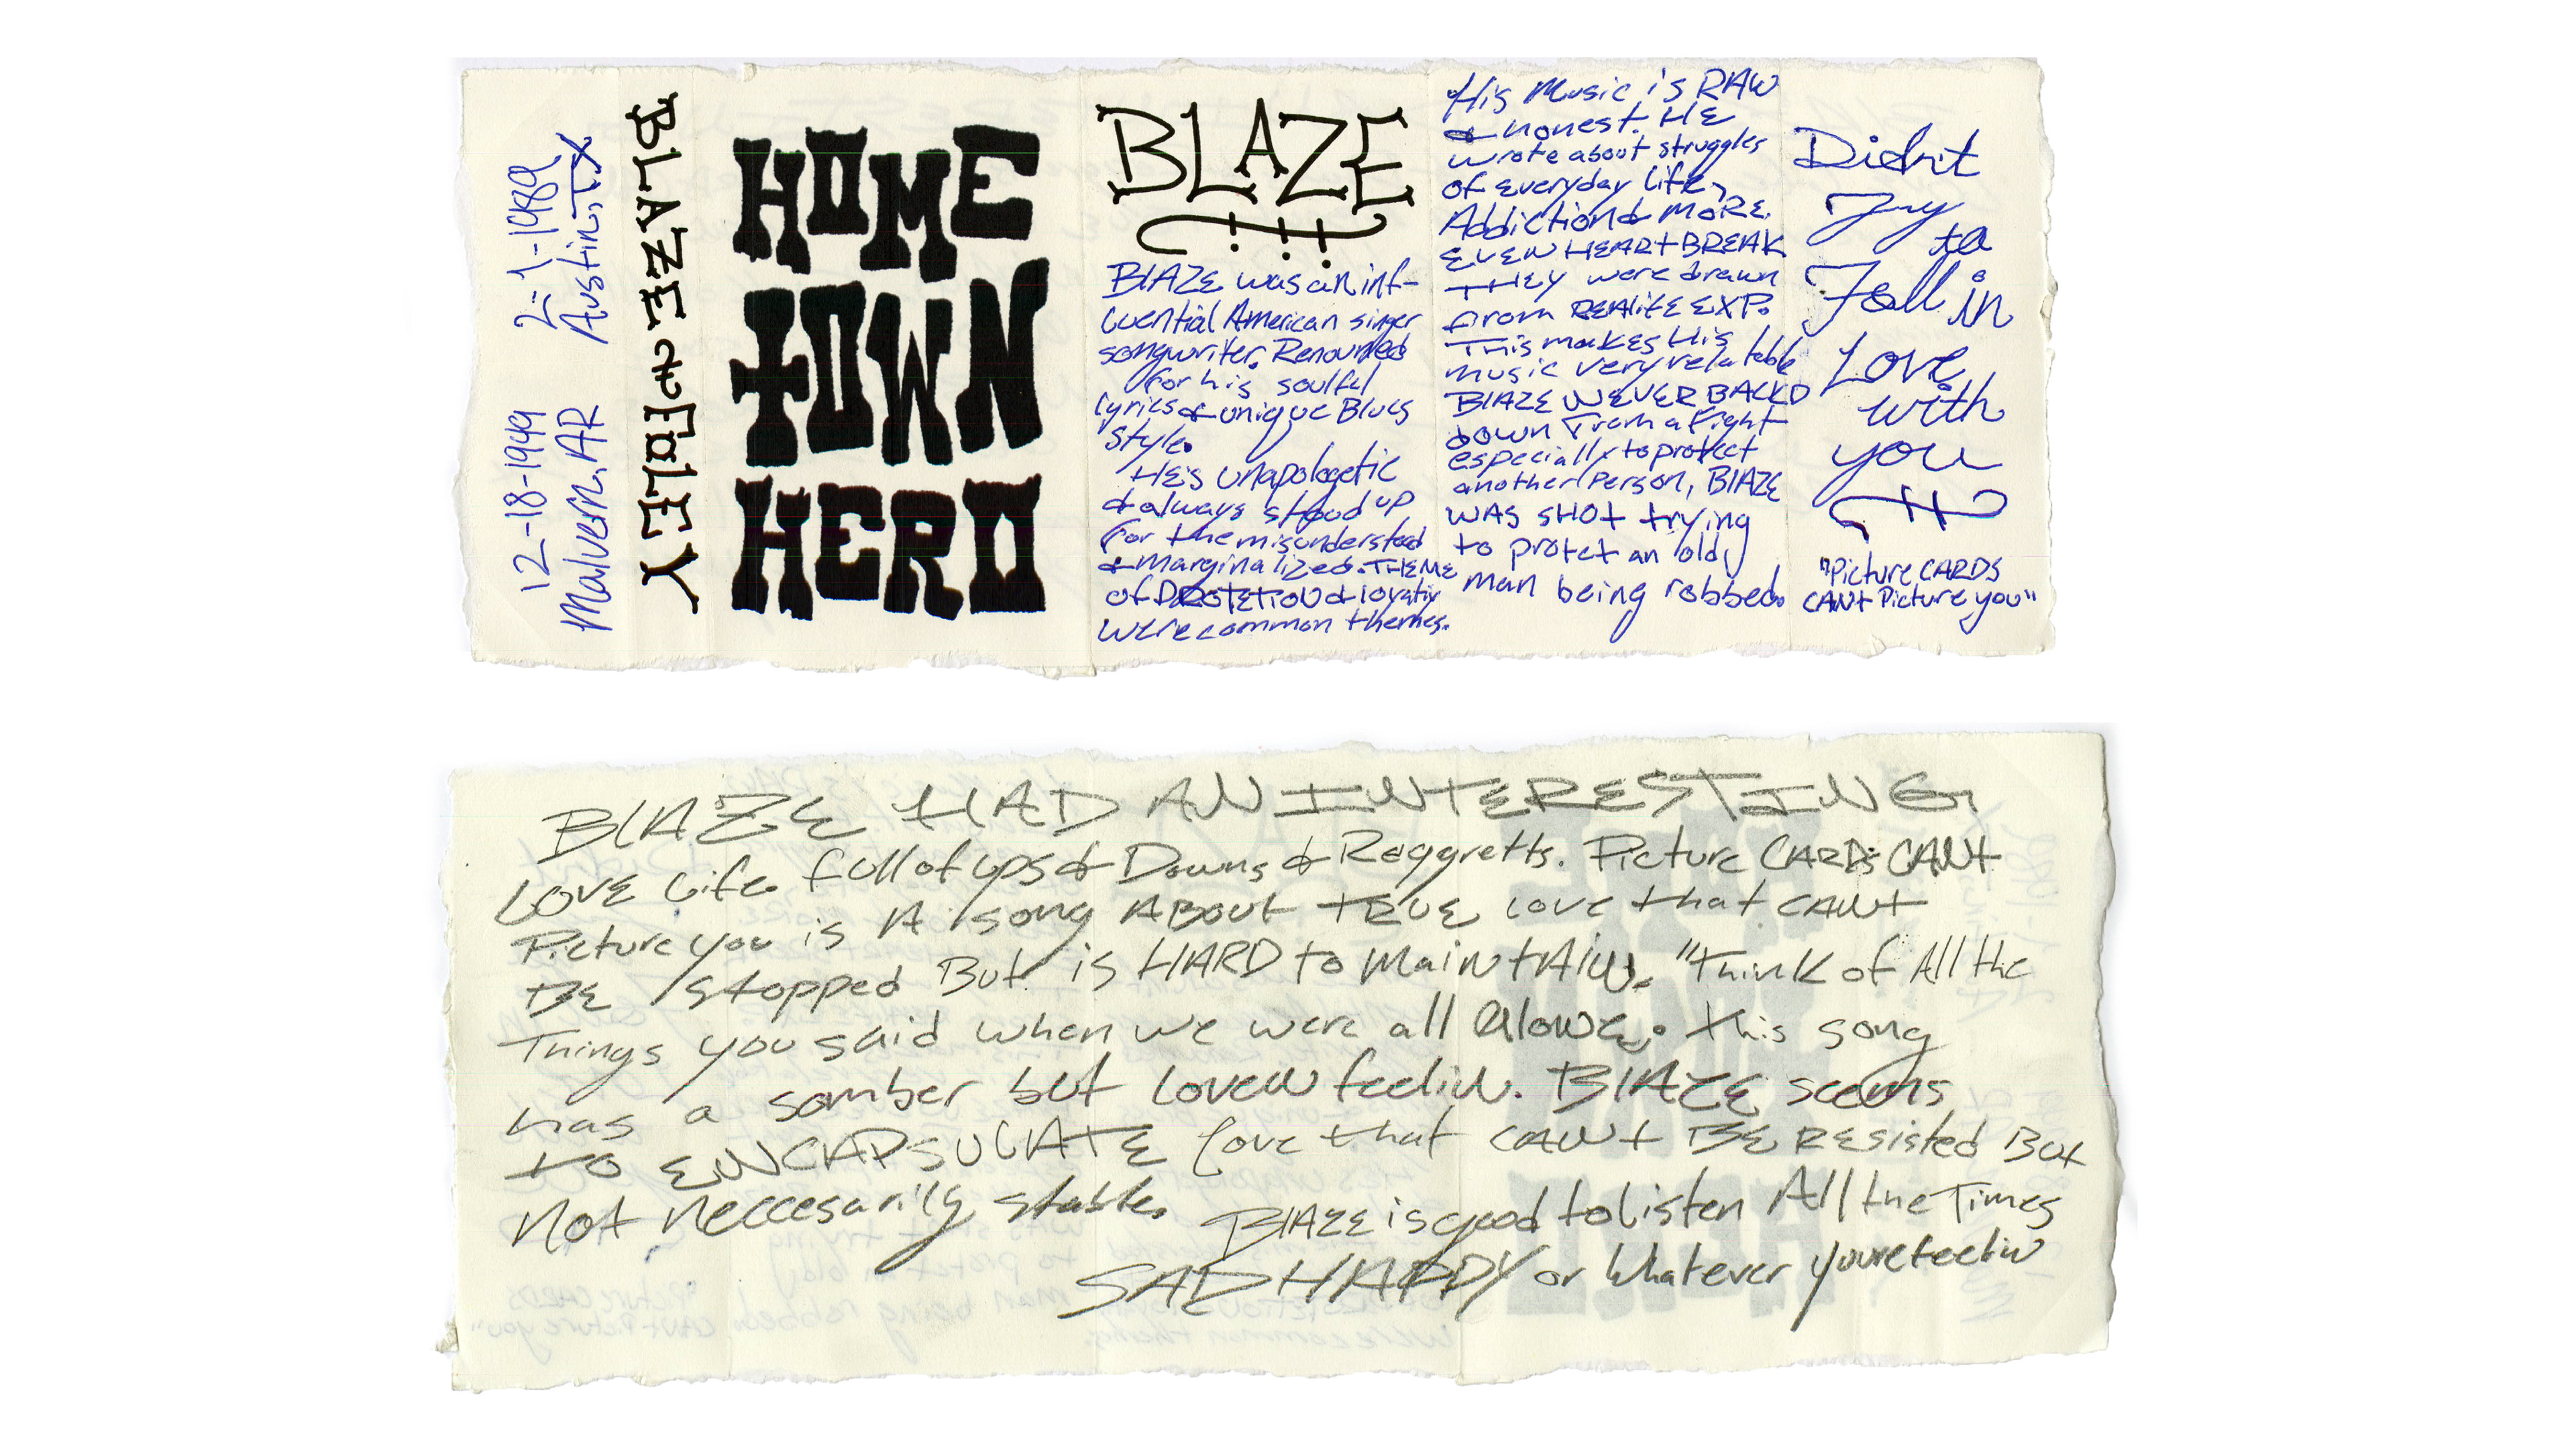 12-18-1949 2-1-1989
Malvern, AR Austin, TX
BLAZE FOLEY
HOME
TOWN
HERO
BLAZE
BLAZE was an inf-
luential American singer
songwriter. Renouned
for his soulful
lyrics & unique Blues
style.
HE's unapologetic
& always stood up
for the misunderstood
& marginalized. THEME
of PROTETION &
were common themes.
His Music is RAW
& honest. HE
wrote about struggles
of everyday life,
Addiction & MORE.
EVEN HEARTBREAK
THEY were drawn
from REAlifE EXP.
This makes His
music very relatable
BLAZE NEVER BACKD
down From a Fight
especially to protect
another Person, BLAZE
WAS SHOT trying
to protet an old
man being robbed.
Didn't
Try
to
Fall in
Love
with
you
"Picture CARDS
CAN't Picture you"
BLAZE HAD AN INTERESTING
LOVE life. full of ups & Downs & Reggretts. Picture CARDS CAN't
Picture you is A song ABOUT TRUE love that CAN't
BE stopped But is HARD to MaintAIN. "Think of All the
Things you said when we were all Alone. This song
has a somber but LoveN feelin. BLAZE seems
to ENCAPSULATE love that CAN't BE RESisted But
Not Neccesarily stable. BLAZE is good to listen All the Times
SAD HAPPY or Whatever youre feelin